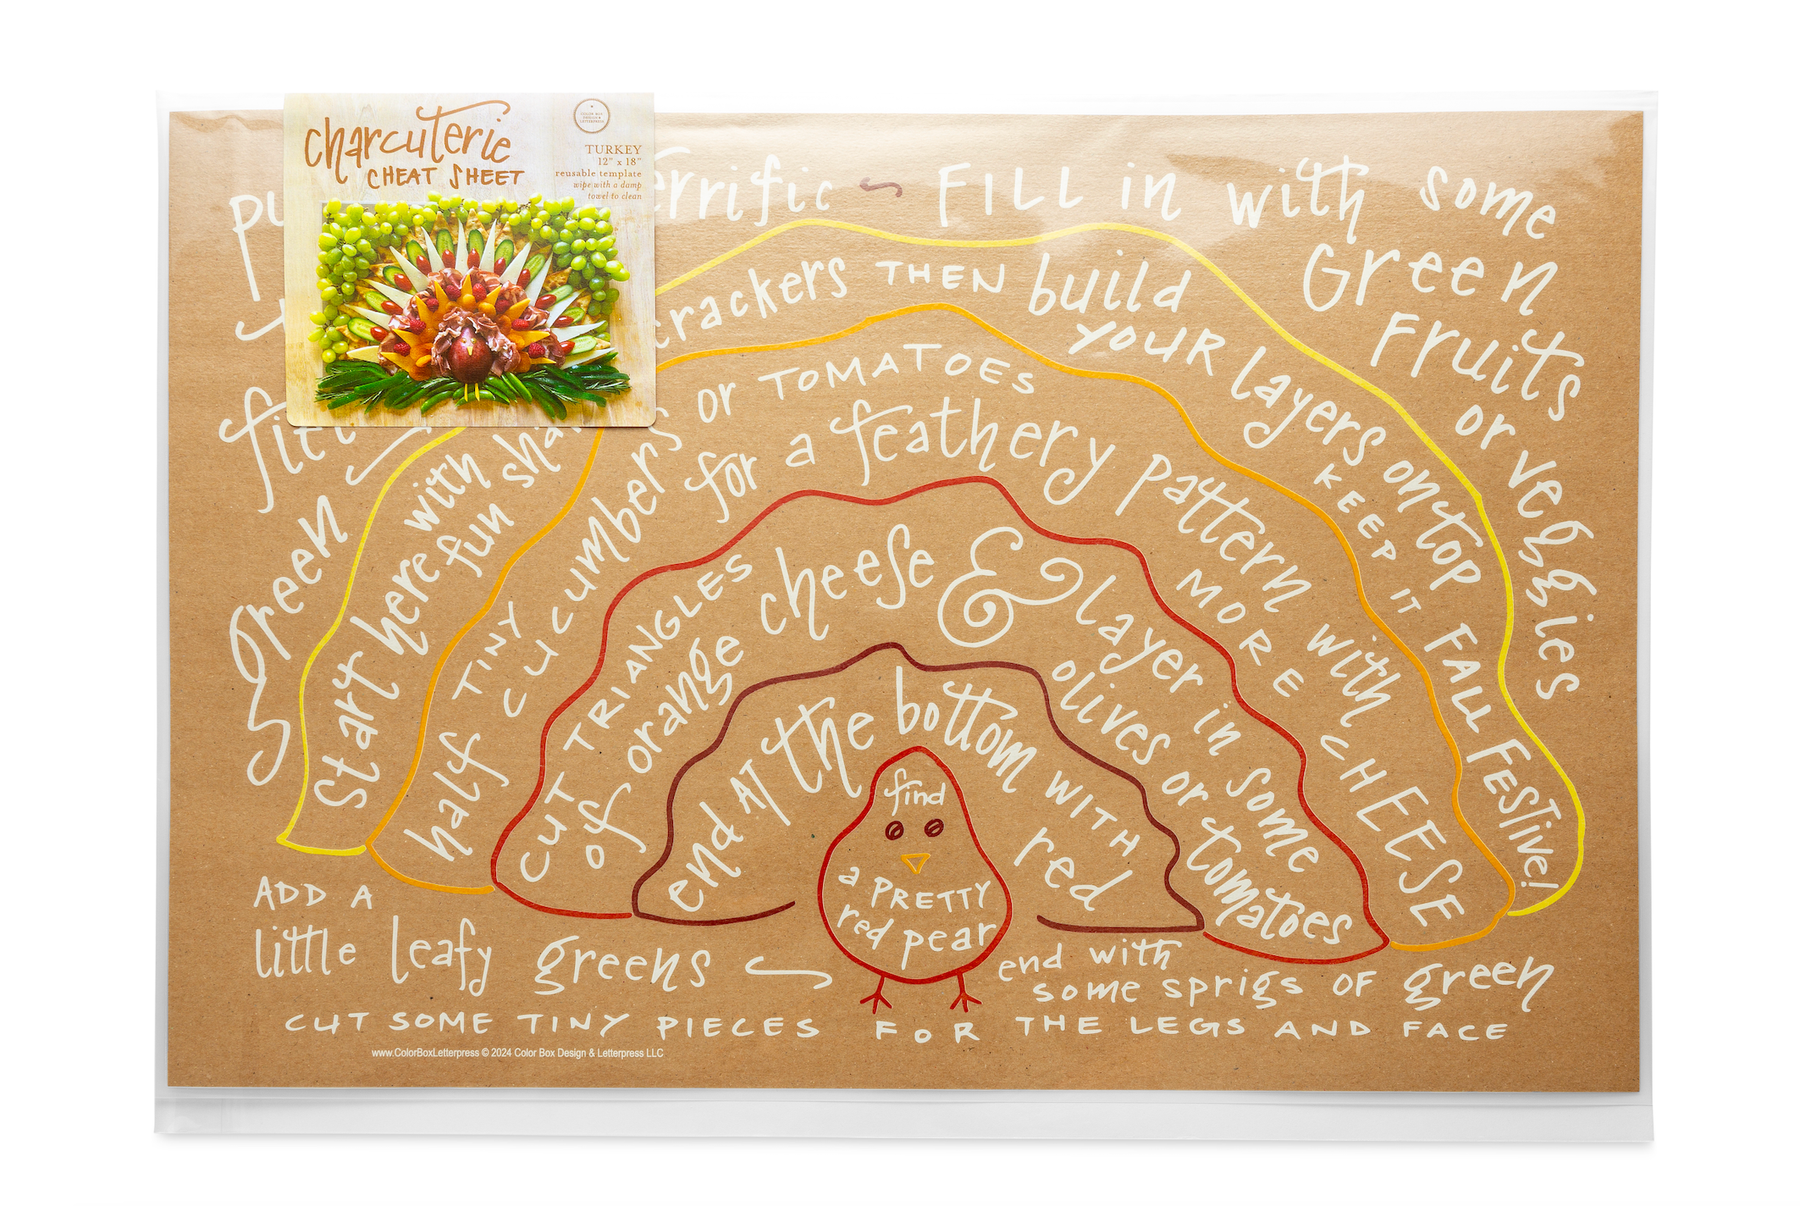 charcuterie
CHEAT SHEET
COLOR BOX
DESIGN &
LETTERPRESS
TURKEY
12" x 18"
reusable template
wipe with a damp
towel to clean
FILL in with some
Green
Fruits
or veggies
green
Start here with
fun
crackers THEN build
YOUR layers on top
KEEP IT FALL FESTIVE!
half TINY CUCUMBERS or TOMATOES
for a feathery pattern with
MORE CHEESE
CUT TRIANGLES
of orange cheese & layer in some
olives or tomatoes
end AT the bottom WITH
red
find
a PRETTY
red pear
ADD A
little leafy greens
end with
some sprigs OF green
CUT SOME TINY PIECES FOR THE LEGS AND FACE
www.ColorBoxLetterpress © 2024 Color Box Design & Letterpress LLC